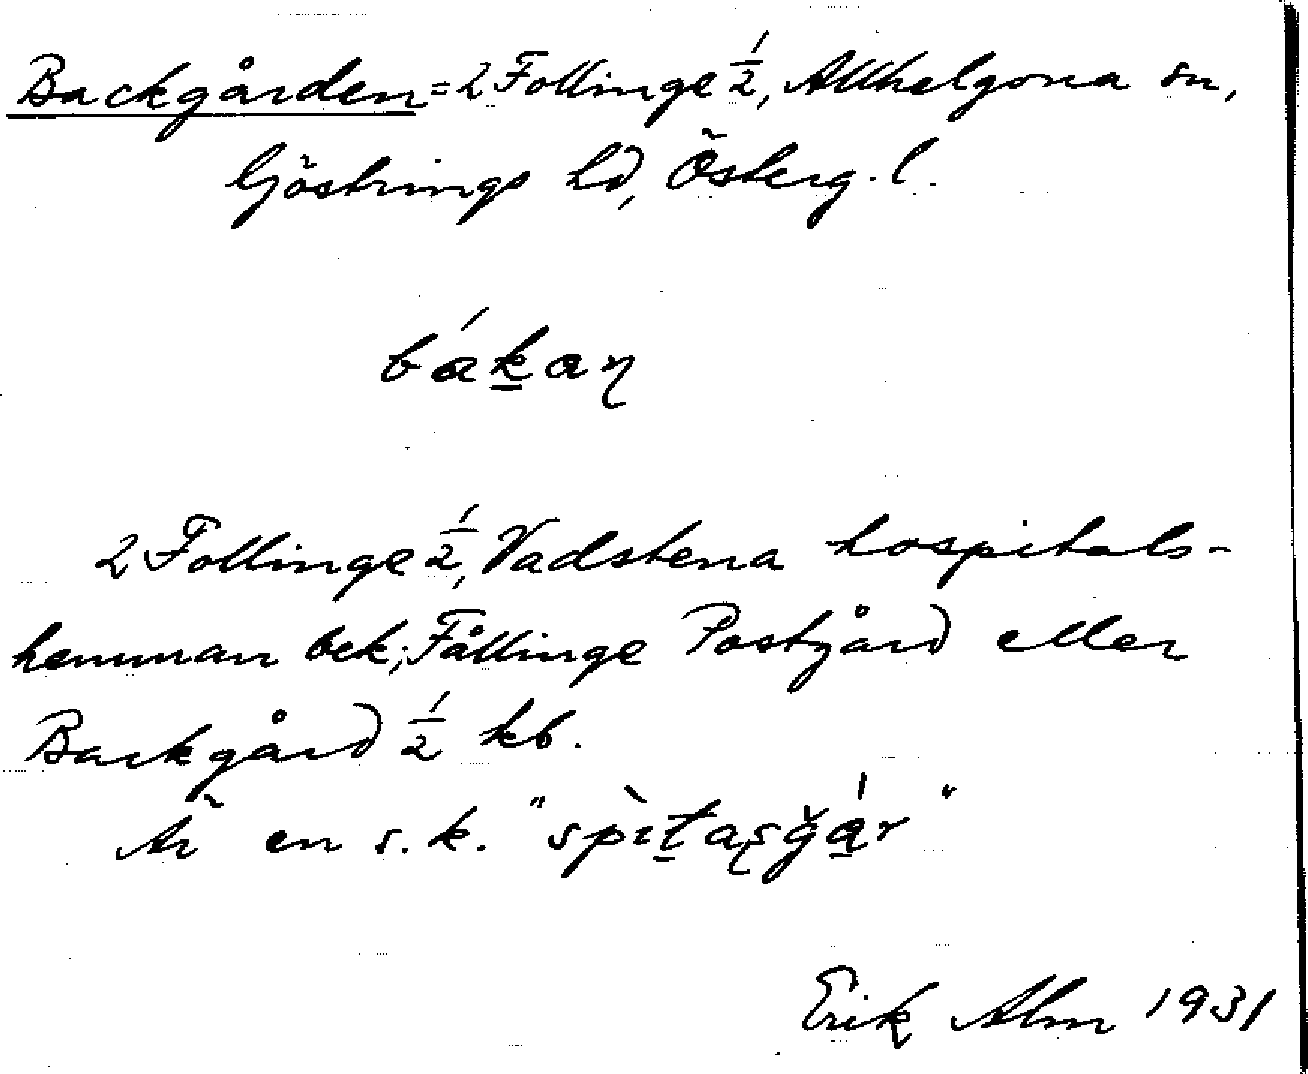 Backgården = 2 Follinge 1/2, Allhelgona sn,
Göstrings hd, Österg. l.
bákaɳ
2 Follinge 1/2, Vadstena hospitals-
hemman bek; Fållinge Postgård eller
Backgård 1/2 kb.
Är en s. k. "spìtaşğár"
Erik Alm 1931